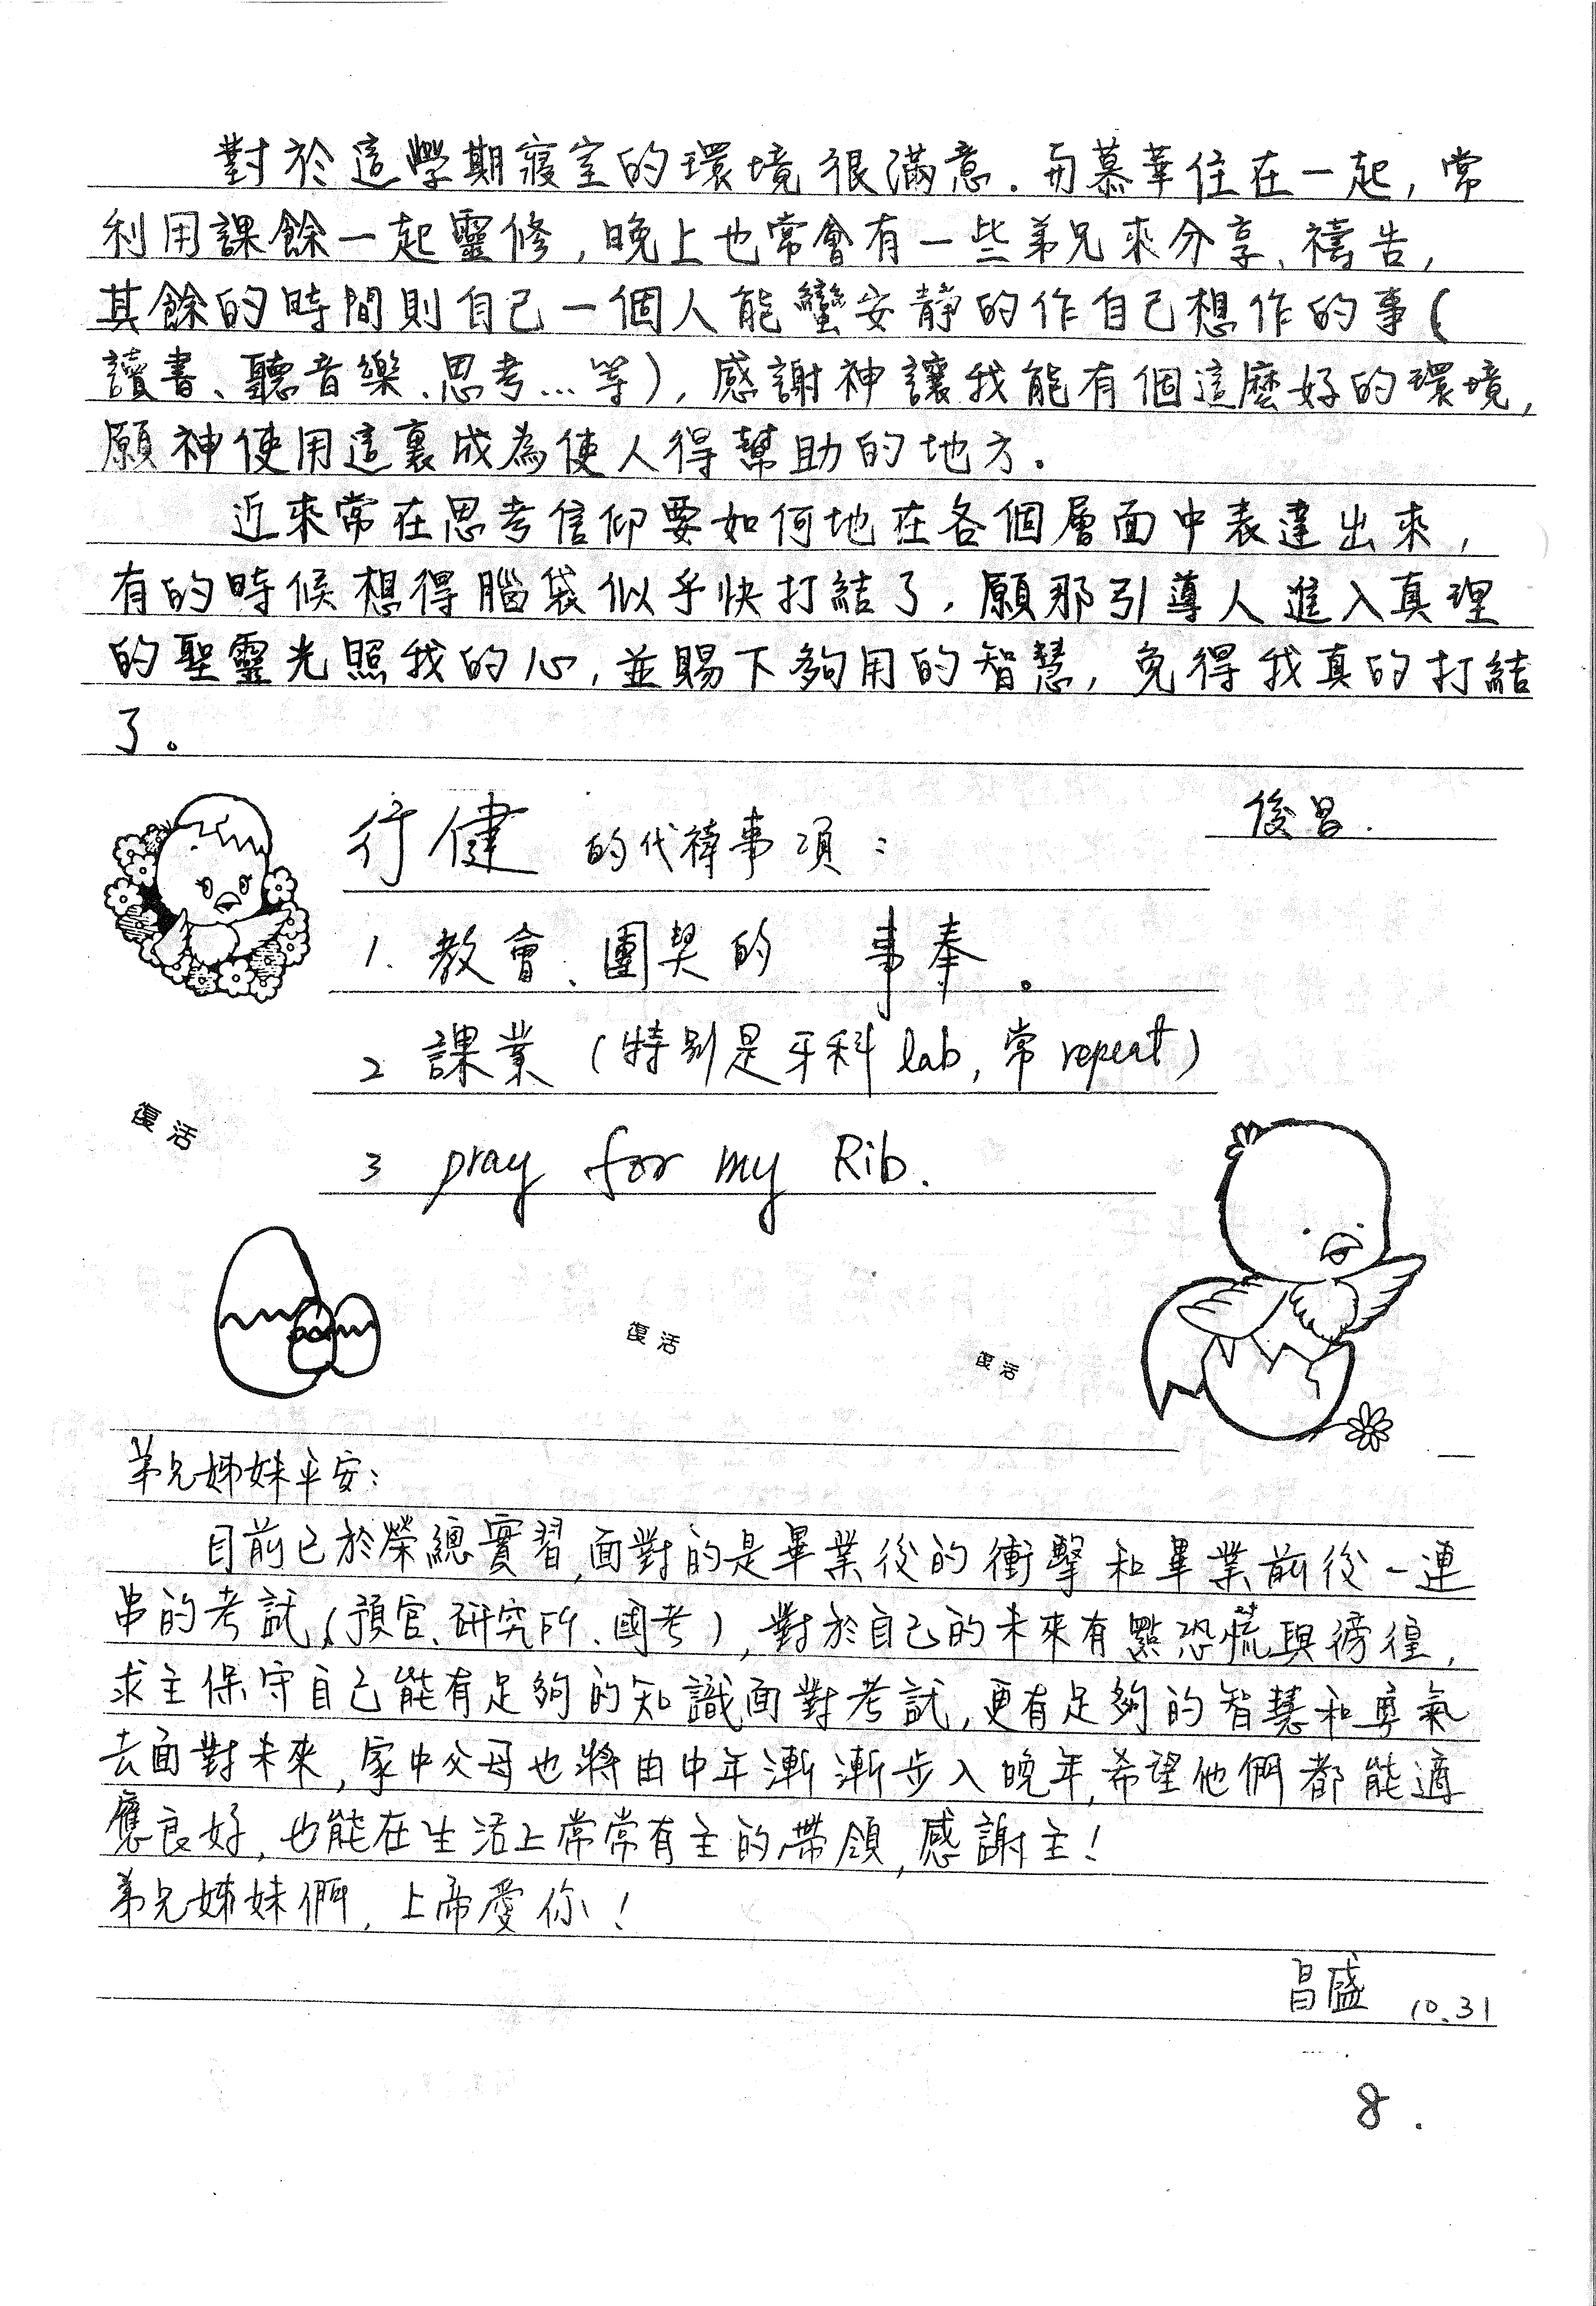 對於這學期寢室的環境很滿意．與慕華住在一起，常
利用課餘一起靈修，晚上也常會有一些弟兄來分享、禱告，
其餘的時間則自己一個人能蠻安靜的作自己想作的事（
讀書、聽音樂、思考…等），感謝神讓我能有個這麼好的環境，
願神使用這裏成為使人得幫助的地方。
近來常在思考信仰要如何地在各個層面中表達出來，
有的時候想得腦袋似乎快打結了，願那引導人進入真理
的聖靈光照我的心，並賜下夠用的智慧，免得我真的打結
了。
俊昌．
行健 的代禱事項：
1. 教會、團契的 事奉。
2 課業（特別是牙科 lab，常 repeat）
復活
3 pray for my Rib.
復活
復活
弟兄姊妹平安：
目前已於榮總實習，面對的是畢業後的衝擊和畢業前後一連
串的考試（預官、研究所、國考），對於自己的未來有點恐慌與徬徨，
求主保守自己能有足夠的知識面對考試，更有足夠的智慧和勇氣
去面對未來，家中父母也將由中年漸漸步入晚年，希望他們都能適
應良好，也能在生活上常常有主的帶領，感謝主！
弟兄姊妹們，上帝愛你！
昌盛 10.31
8.